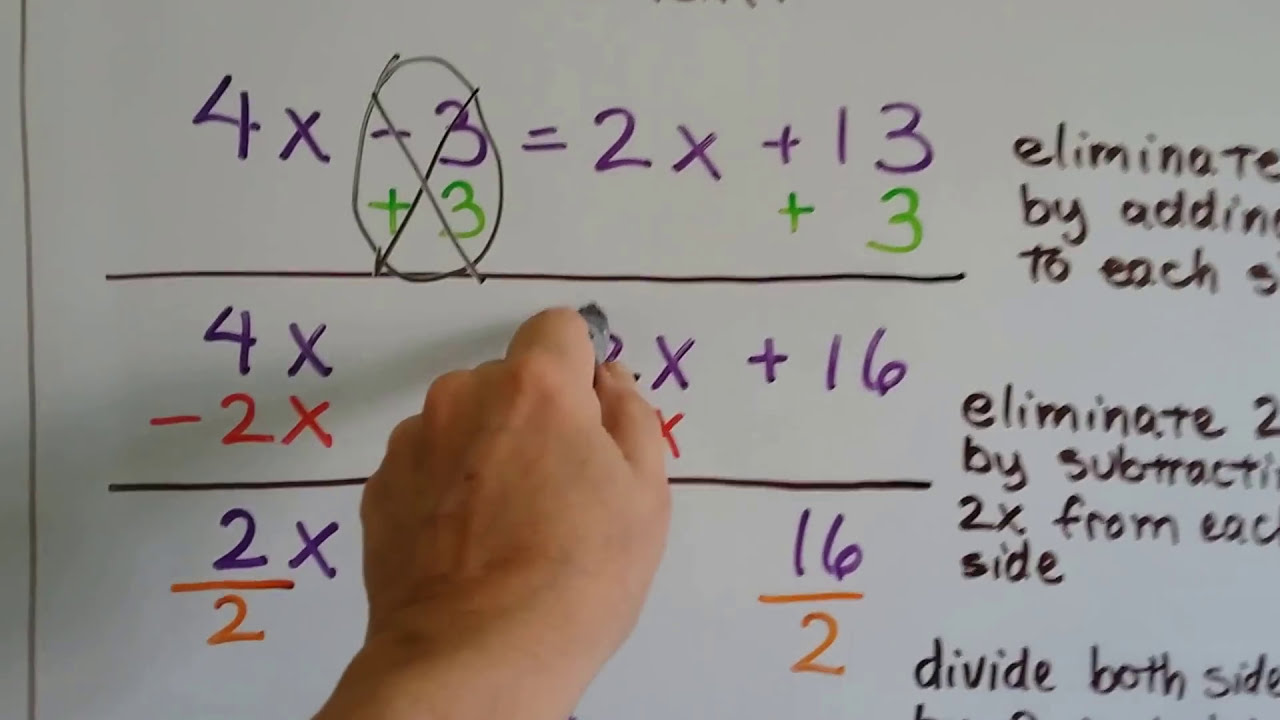 4x - 3 = 2x + 13
+ 3 + 3
eliminate
by adding
to each
4x 2x + 16
- 2x x
eliminate 2
by subtracti
2x from each
side
2x 16
2 2
divide both side